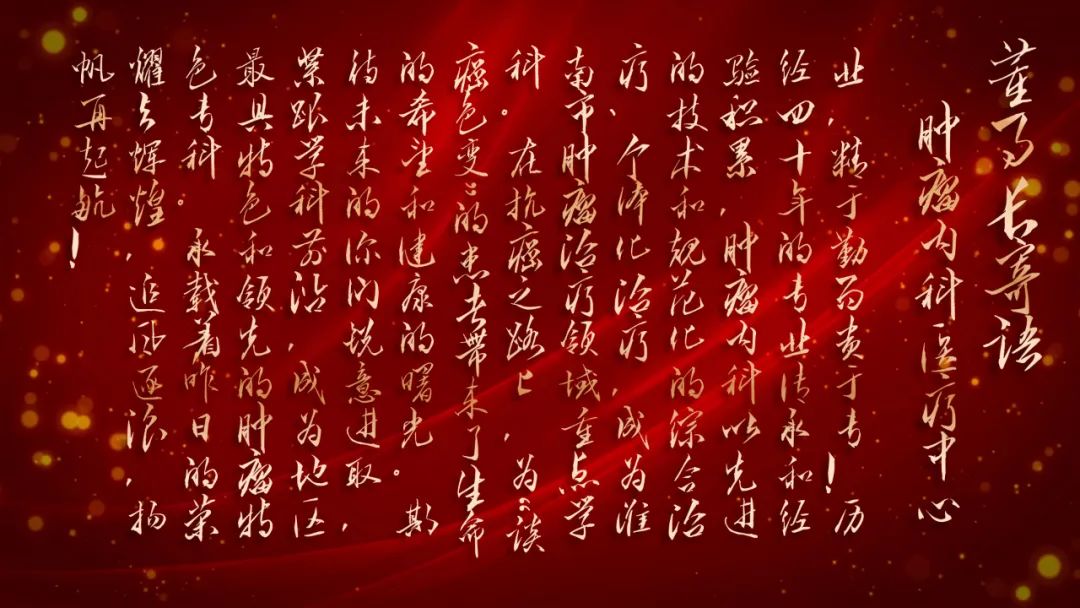 董事长寄语
肿瘤内科医疗中心
业，精于勤而贵于专！历
经四十年的专业传承和经
验积累，肿瘤内科以先进
的技术和规范化的综合治
疗、个体化治疗，成为淮
南市肿瘤治疗领域重点学
科。在抗癌之路上，为“谈
癌色变”的患者带来了生命
的希望和健康的曙光。期
待未来的你们锐意进取，
紧跟学科前沿，成为地区
最具特色和领先的肿瘤特
色专科。承载着昨日的荣
耀与辉煌，追风逐浪，扬
帆再起航！